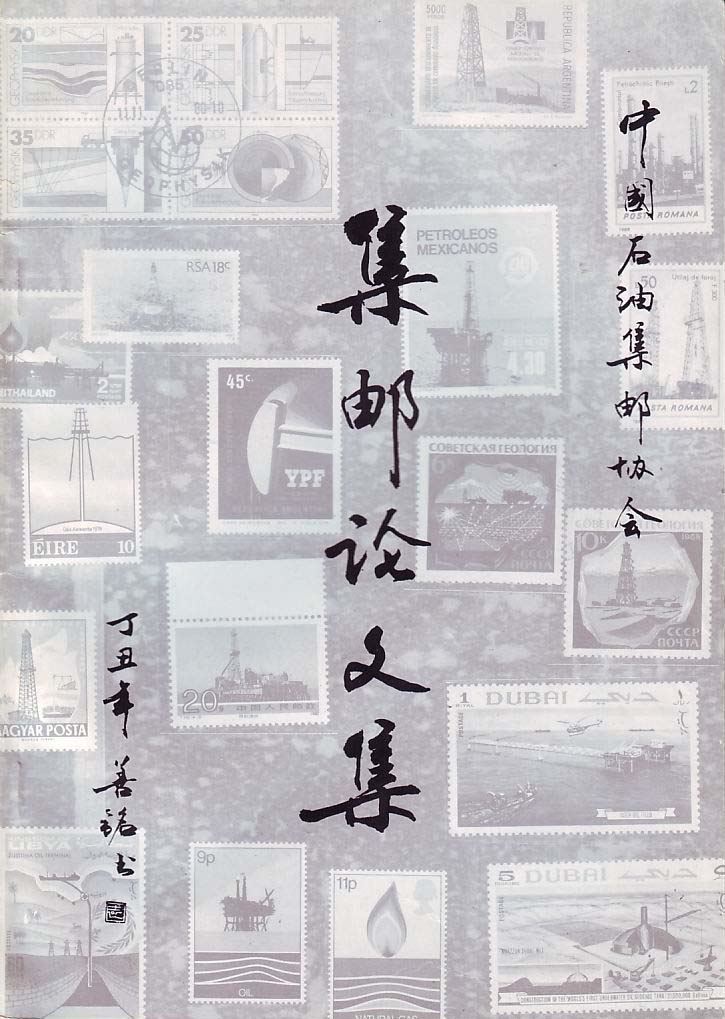 中國石油集邮协会
集邮论文集
丁丑年善銘书
20 DDR
25 DDR
GEOPHYSIK
35
50
BERLIN
GEOPHYSIK
5000
PESOS
REPUBLICA ARGENTINA
Petrochimic Pitesti
L2
POSTA ROMANA
RSA 18c
PETROLEOS
MEXICANOS
4.30
Utilaj de foraj
50
POSTA ROMANA
THAILAND
2
45c.
YPF
СОВЕТСКАЯ ГЕОЛОГИЯ
6К
СССР
ПОЧТА
СОВЕТСКАЯ ГЕОЛОГИЯ
10К
1968
СССР
ПОЧТА
ÉIRE 10
20
中国人民邮政
MAGYAR POSTA
1
RIYAL
DUBAI
دبي
POSTAGE
LIBYA
9p
OIL
11p
NATURAL GAS
5
DUBAI
POSTAGE